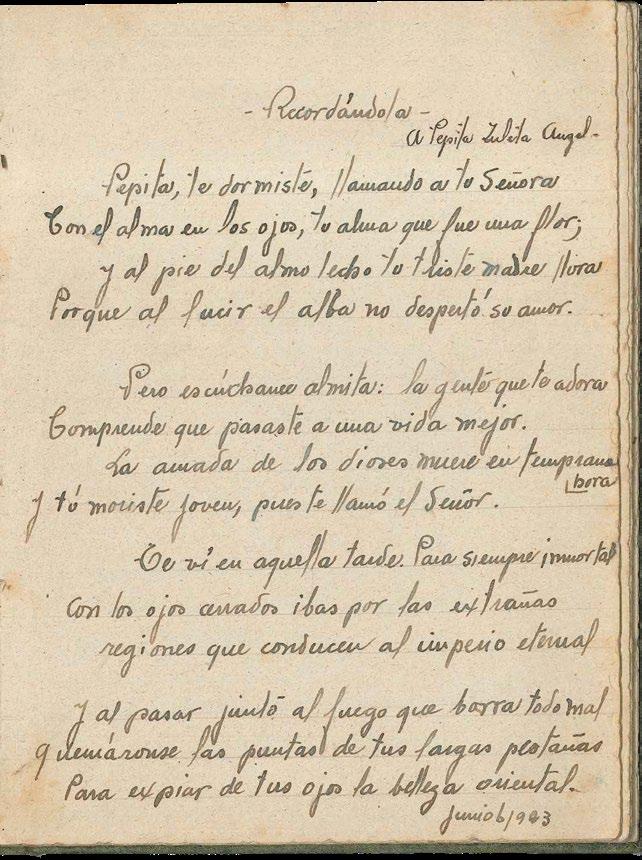 - Recordándola -
A Pepita Zuleta Angel -
Pepita, te dormiste, llamando a tu Señora
Con el alma en los ojos, tu alma que fue una flor;
y al pie del almo lecho tu triste madre llora
Porque al lucir el alba no despertó su amor.
Pero escúchame almita: la gente que te adora
Comprende que pasaste a una vida mejor.
La amada de los dioses muere en temprana
hora
y tú moriste joven, pues te llamó el Señor.
Te ví en aquella tarde. Para siempre inmortal
con los ojos cerrados ibas por las extrañas
regiones que conducen al imperio eternal
y al pasar junto al fuego que borra todo mal
quemáronse las puntas de tus largas pestañas
Para expiar de tus ojos la belleza oriental.
Junio 6/923